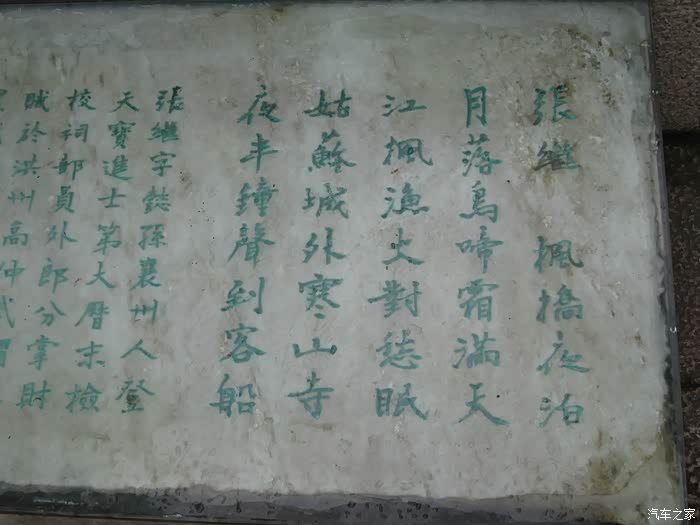 張繼 楓橋夜泊
月落烏啼霜滿天
江楓漁火對愁眠
姑蘇城外寒山寺
夜半鐘聲到客船
張繼字懿孫襄州人登
天寶進士第大曆末檢
校祠部員外郎分掌財
賦於洪州高仲武
汽车之家